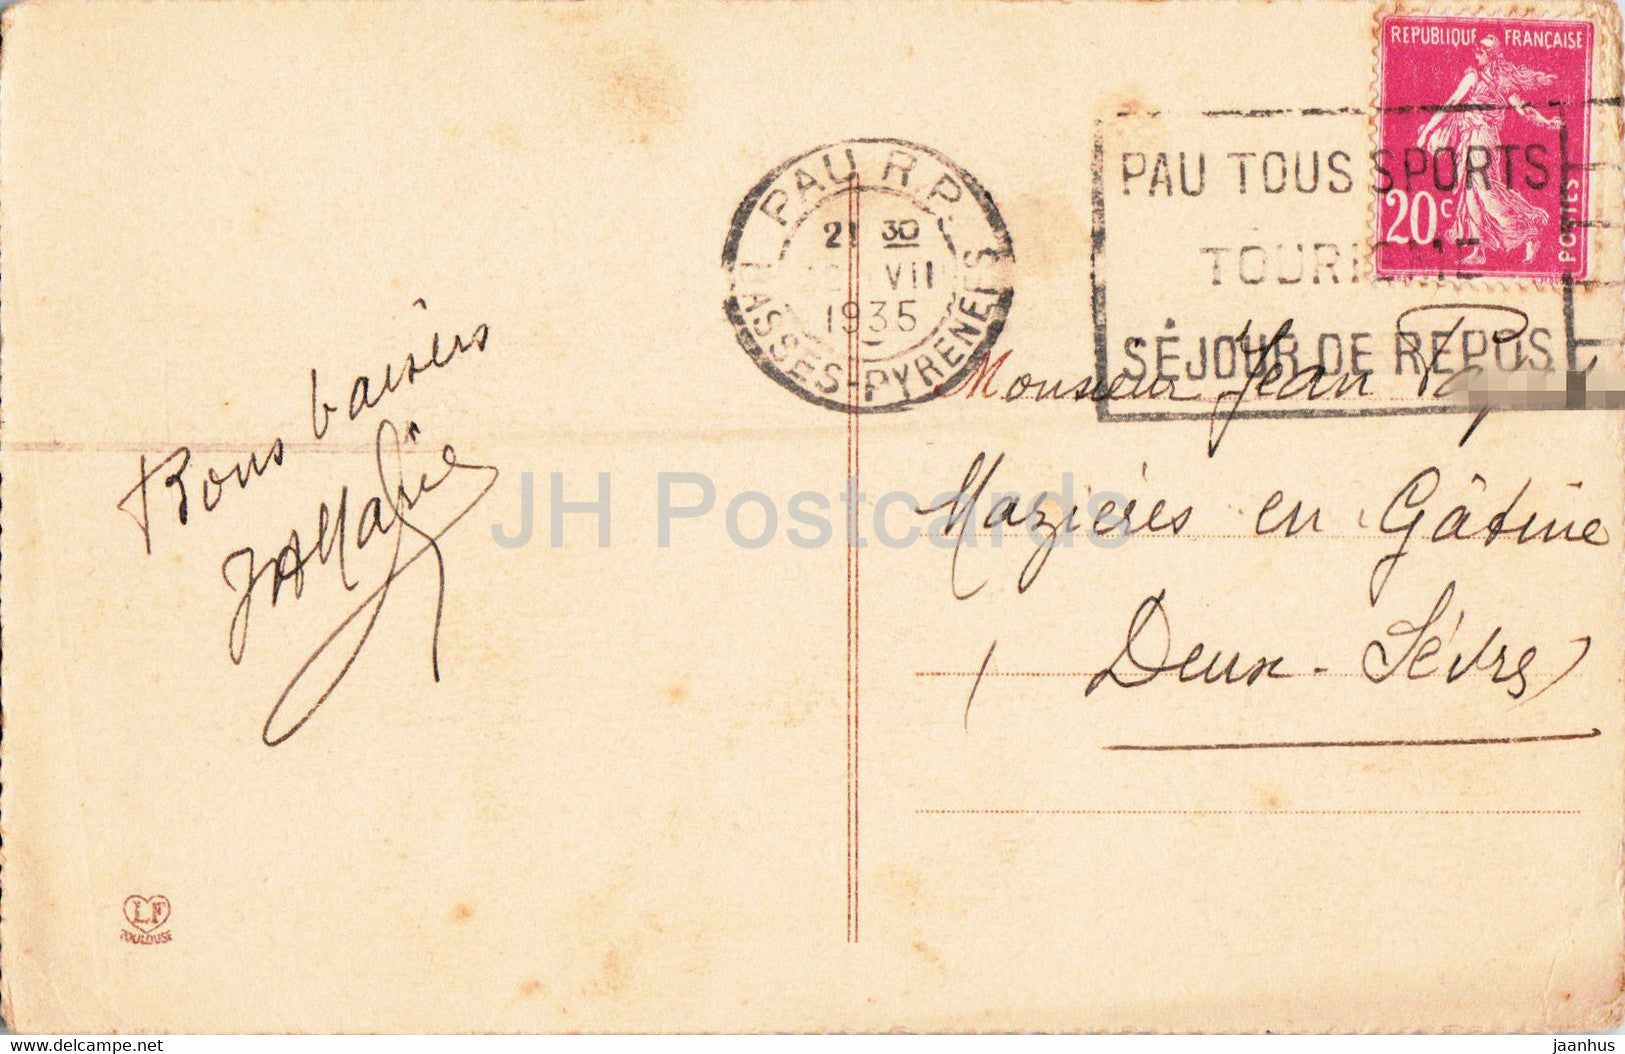 REPUBLIQUE FRANÇAISE
20c
POSTES
PAU R.P.
21 30
VII
1935
BASSES-PYRENEES
PAU TOUS SPORTS
TOURISME
SÉJOUR DE REPOS
Bons baisers
Monsieur Jean
Mazières en Gâtine
(Deux-Sèvres)
JH Postcards
LF
TOULOUSE
delcampe.net
jaanhus